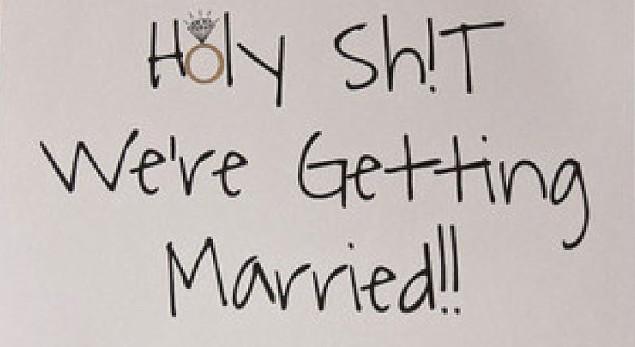 Holy Sh!T
We're Getting
Married!!